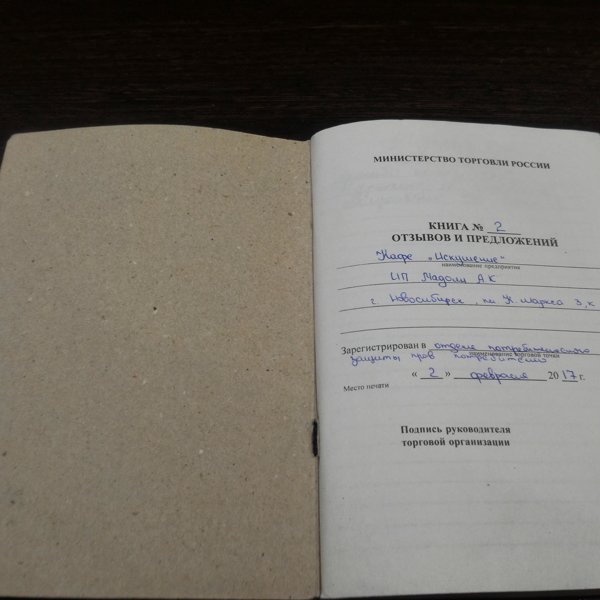 МИНИСТЕРСТВО ТОРГОВЛИ РОССИИ
КНИГА № 2
ОТЗЫВОВ И ПРЕДЛОЖЕНИЙ
Кафе „Искушение"
наименование предприятия
ИП Мадоли А К
г. Новосибирск, пл К. маркса 3, к
Зарегистрирован в отделе потребительского
наименование торговой точки
защиты прав потребителей
« 2 » февраля 2017 г.
Место печати
Подпись руководителя
торговой организации